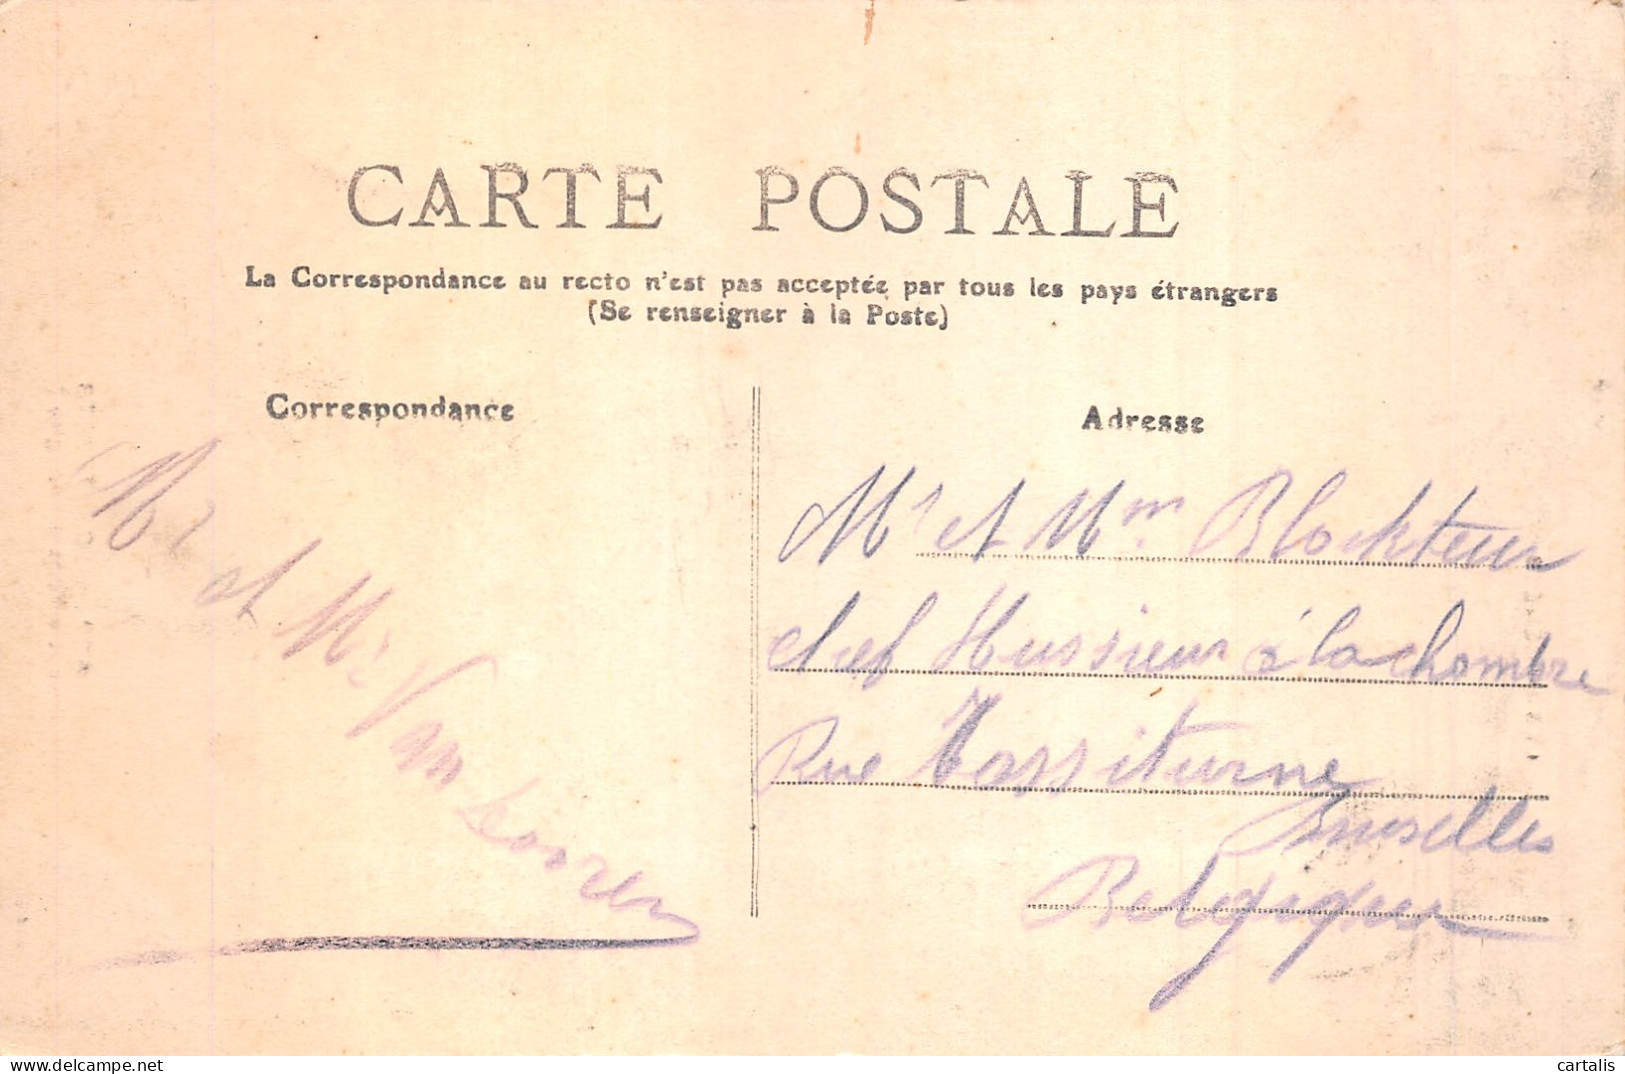 CARTE POSTALE
La Correspondance au recto n'est pas acceptée par tous les pays étrangers
(Se renseigner à la Poste)
Correspondance
Mr et Me Van Looren
Adresse
Mr et Mm Blockteur
chef Hussieur à la chombre
Rue Tassiturne
Bruselles
Belgique
delcampe.net
cartalis